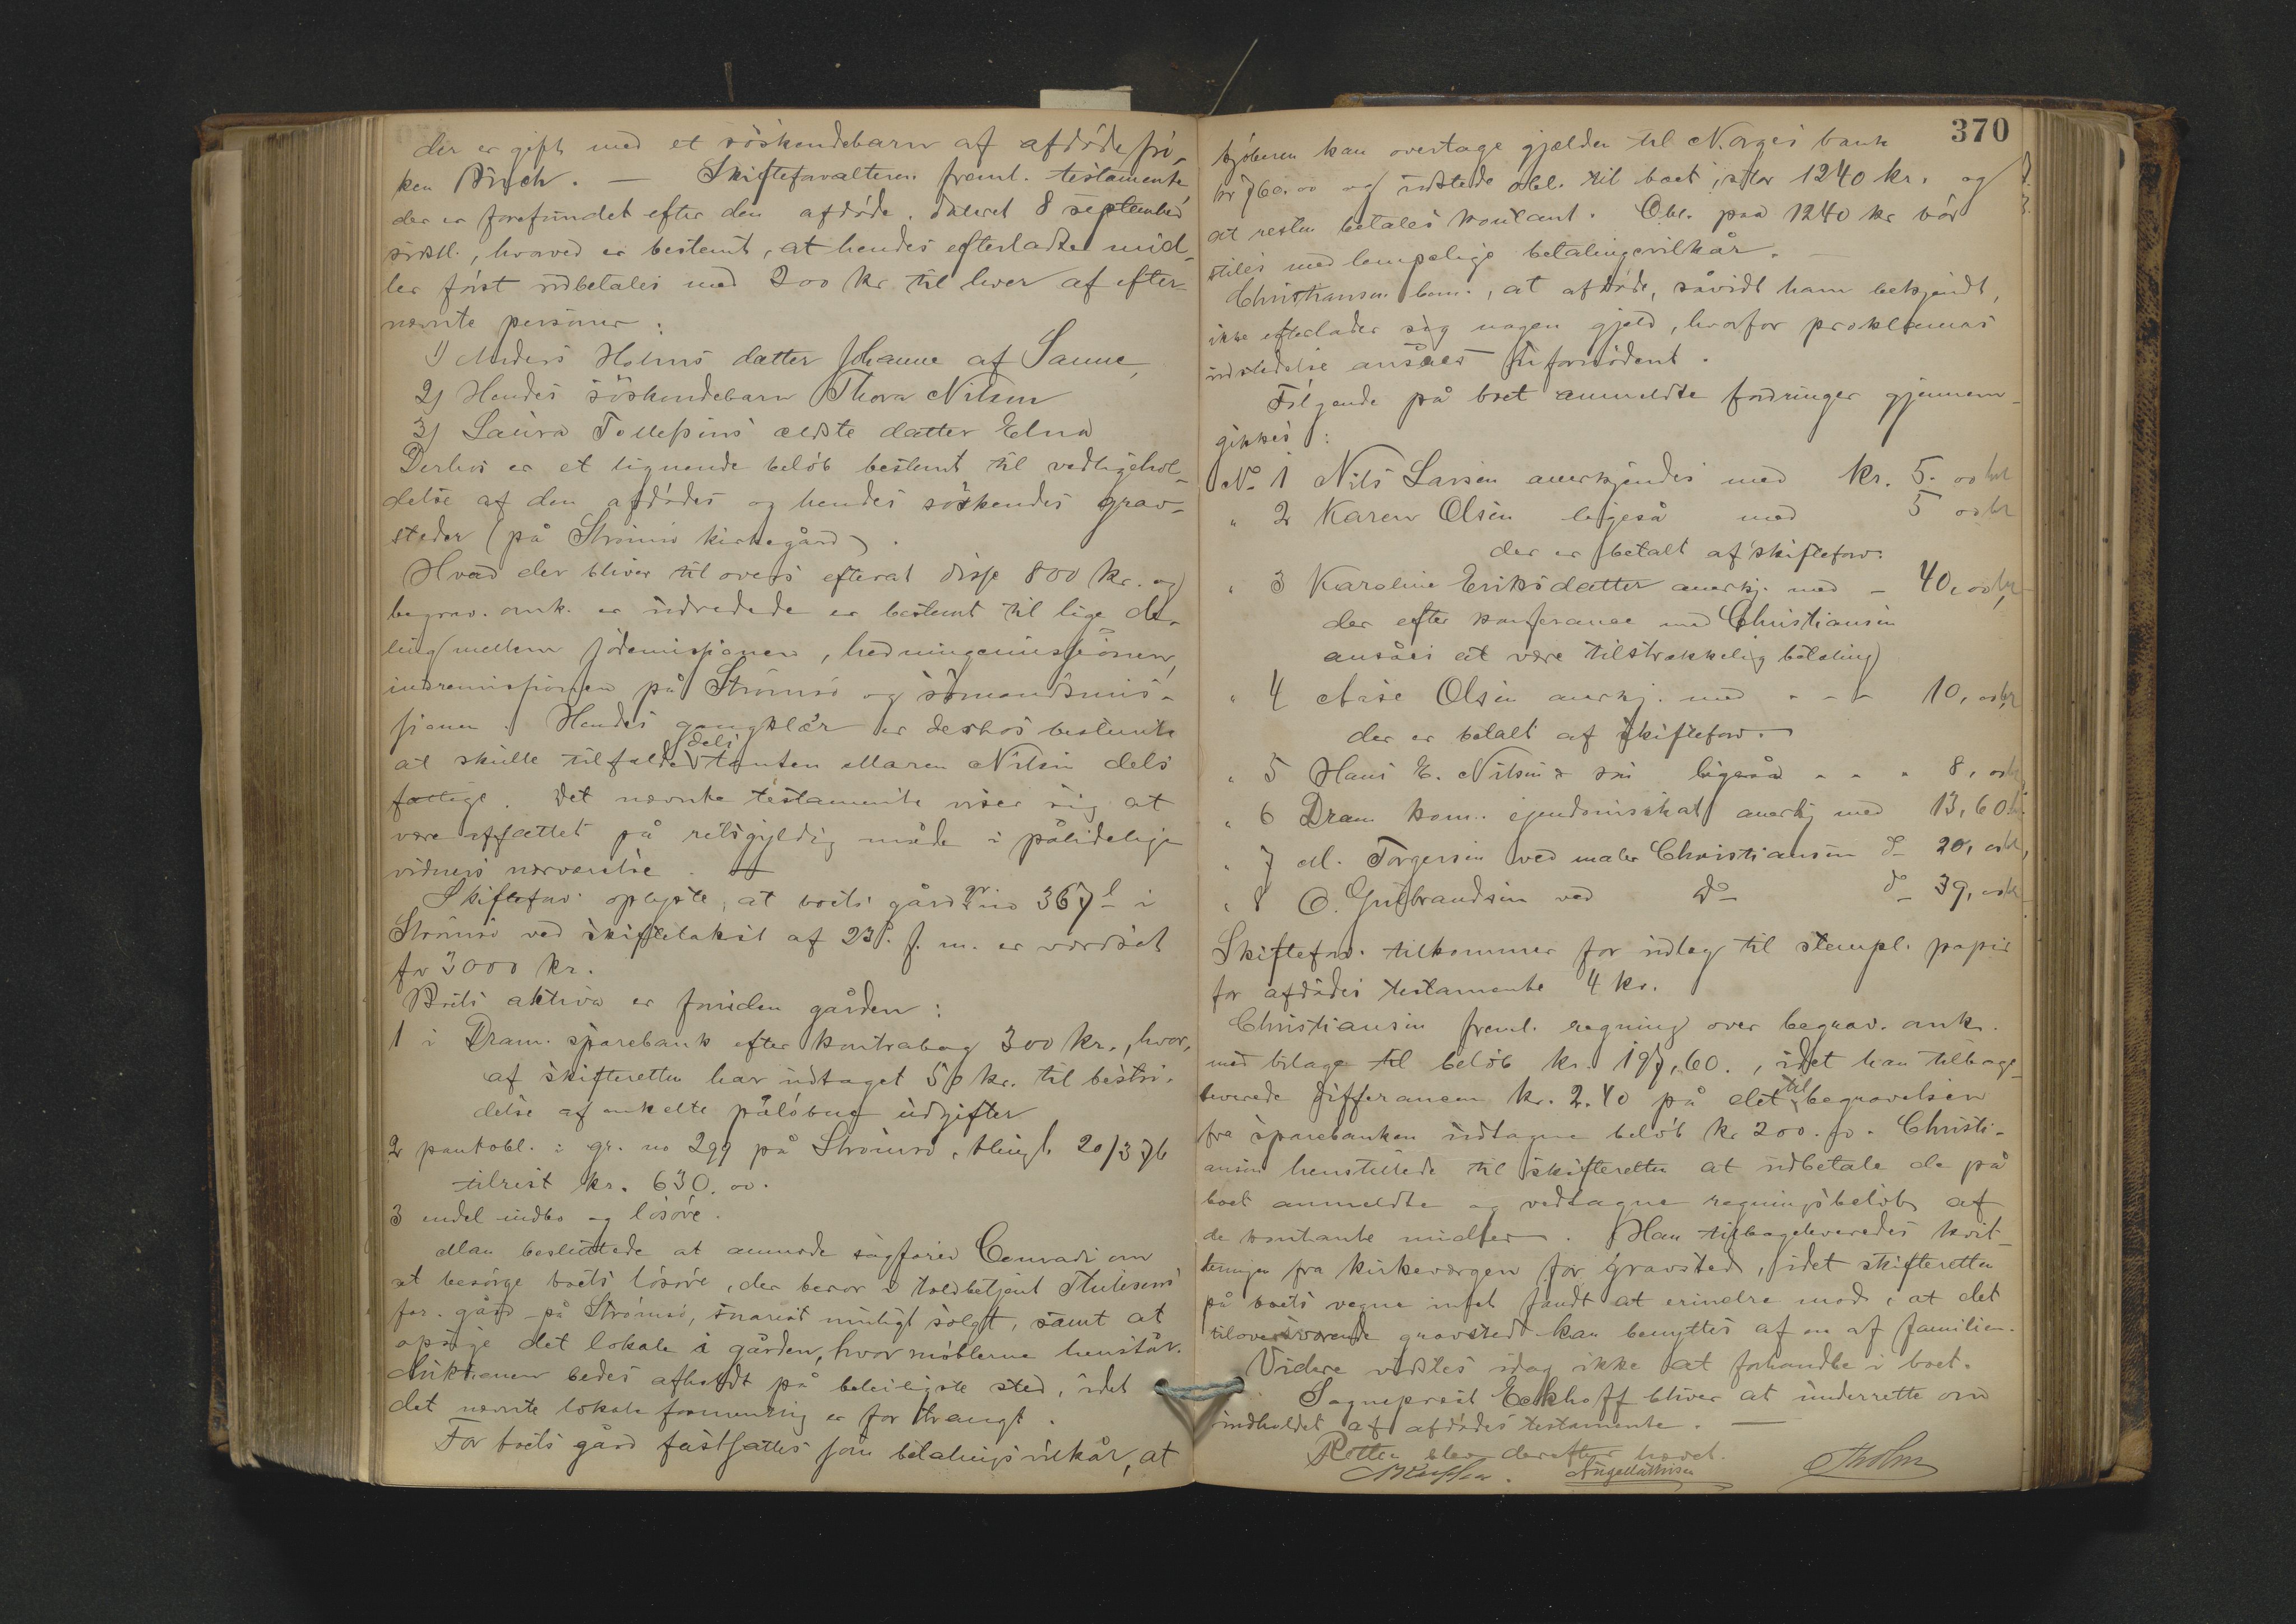 der er gift med et söskendebarn af afdøde frö-
ken Birch. — Skifteforvalteren freml. testamente
der er forefundet efter den afdøde, dateret 8 september
sidstl., hvorved er bestemt, at hendes efterladte mid-
ler först udbetales med 200 kr. til hver af efter-
nævnte personer:
1) Anders Holms datter Johanne af Sanne,
2) Hendes söskendebarn Thora Nilsen
3) Laura Tollefsens ældste datter Elna
Derhos er et lignende belöb bestemt til vedligehol-
delse af den afdödes og hendes söskendes grav-
steder (på Strömsö kirkegård).
Hvad der bliver til overs efterat disse 800 kr. og
begrav. omk. er udredede er bestemt til lige de-
ling mellem jödemissionen, hedningemissionen,
indremissionen på Strömsö og sömandsmis-
sionen. Hendes gangklær er derhos bestemt
at skulle tilfalde dels tanten Maren Nilsen dels
fattige. Det nævnte testamente viser sig at
være affattet på retsgyldig måde i pålidelige
vidners nærværelse. —
Skifteforv. oplyste, at boets gård gr. no 367 i
Strömsö ved skiftetakst af 23 f. m. er værdsat
for 3000 kr.
Boets aktiva er foruden gården:
1 i Dram. sparebank efter kontrabog 300 kr., hvor-
af skifteretten har udtaget 50 kr. til bestri-
delse af enkelte påløbne udgifter
2 pantobl. i gr. no 299 på Strömsö, thingl. 20/3 76
tilrest kr. 630.00.
3 endel indbo og lösöre.
Man besluttede at anmode sagförer Conradi om
at besörge boets lösöre, der beror i toldbetjent Thulesens
for. gård på Strömsö, snarest muligt solgt, samt at
opsige det lokale i gården, hvor möblerne henstår.
Auktionen bedes afholdt på beleiligste sted, idet
det nævnte lokale formentlig er for trangt.
For boets gård fastsattes som betalingsvilkår, at
370
kjöberen kan overtage gjælden til Norges bank
kr 760.00 og udstede obl. til boet, stor 1240 kr. og
at resten betales kontant. Obl. paa 1240 kr bör
stiles med lempelige betalingsvilkår. —
Christiansen bem., at afdöde, såvidt ham bekjendt,
ikke efterlader sig nogen gjæld, hvorfor proklamas
udstedelse ansåes ufornödent.
Fölgende på boet anmeldte fordringer gjennem-
gikkes:
No 1 Nils Larsen anerkjendes med kr. 5.00
" 2 Karen Olsen ligeså med 5 00
der er betalt af skifteforv.
" 3 Karoline Eriksdatter anerkj. med – 40,00
der efter konferance med Christiansen
ansåes at være tilstrækkelig betaling
" 4 Anne Olsen anerkj. med - - - 10,00
der er betalt af skifteforv. —
" 5 Hans E. Nilsen & sön ligeså - - - 8,00
" 6 Dram kom. eiendomsskat anerkj med 13,60
" 7 M. Torgersen ved maler Christiansen do 20,00
" 8 O. Gulbrandsen ved do do 39,00
Skifteforv. tilkommer for udlæg til stempl. papir
for afdödes testamente 4 kr.
Christiansen freml. regning over begrav. omk.
med bilage til belöb kr. 197,60., idet han tilbage-
leverede differancen kr. 2.40 på det til begravelsen
fra sparebanken udtagne belöb kr 200.00. Christi-
ansen henstillede til skifteretten at udbetale de på
boet anmeldte og vedtagne regningsbelöb af
de kontante midler. Han tilbageleveredes kvit-
teringen fra kirkeværgen for gravsted, idet skifteretten
på boets vegne intet fandt at erindre mod, at det
tiloversværende gravsted kan benyttes af en af familien.
Videre vidstes idag ikke at forhandle i boet.
Sogneprest Eckhoff bliver at underrette om
indholdet af afdödes testamente. —
Retten blev derefter hævet.
Holm